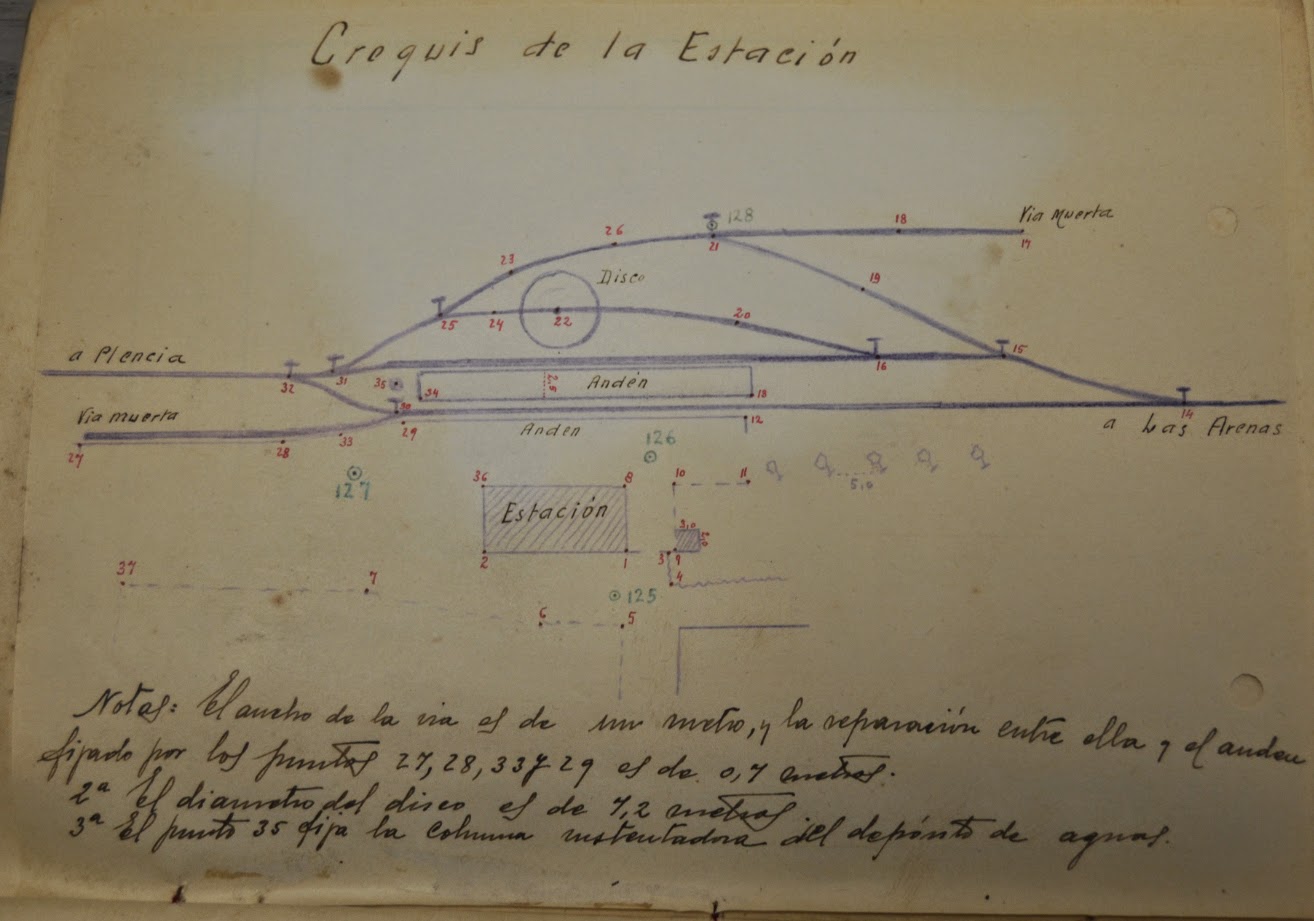 Croquis de la Estación
128
18
Via Muerta
26
21
17
23
Disco
19
25
24
22
20
a Plencia
15
32
31
35
16
34
Andén
2,5
13
Via muerta
30
14
29
Anden
12
a Las Arenas
27
28
33
126
127
36
8
10
11
5,0
Estación
3,0
2
1
3
9
4
37
7
125
6
5
Notas: El ancho de la via es de un metro, y la separación entre ella y el anden
fijado por los puntos 27, 28, 33 y 29 es de 0,7 metros.
2ª El diametro del disco es de 7,2 metros.
3ª El punto 35 fija la columna sustentadora del depósito de aguas.